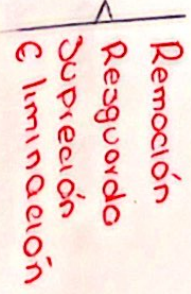 Remoción
Resguardo
Supreción
Eliminación